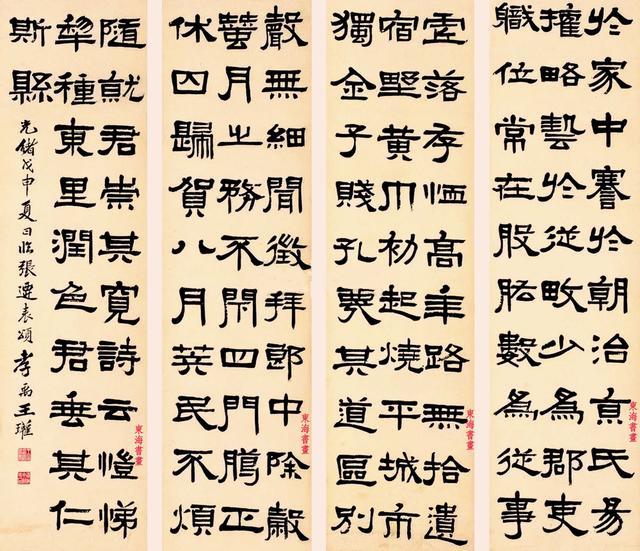 於家中謇於朝治京氏易
權略藝於從畋少為郡吏
職位常在股肱數為從事
東海書畫
虛落存恤高年路無拾遺
宿野黃巾初起燒平城市
獨全子賤孔蔑其道區別
東海書畫
聲無細聞徵拜郎中除穀
蠶月之務不閉四門騰正
休囚歸賀八月筭民不煩
東海書畫
隨就君崇其寬詩云愷悌
犂種東里潤色君垂其仁
斯縣
光緒戊申夏日臨張遷表頌孝禹王瓘
東海書畫